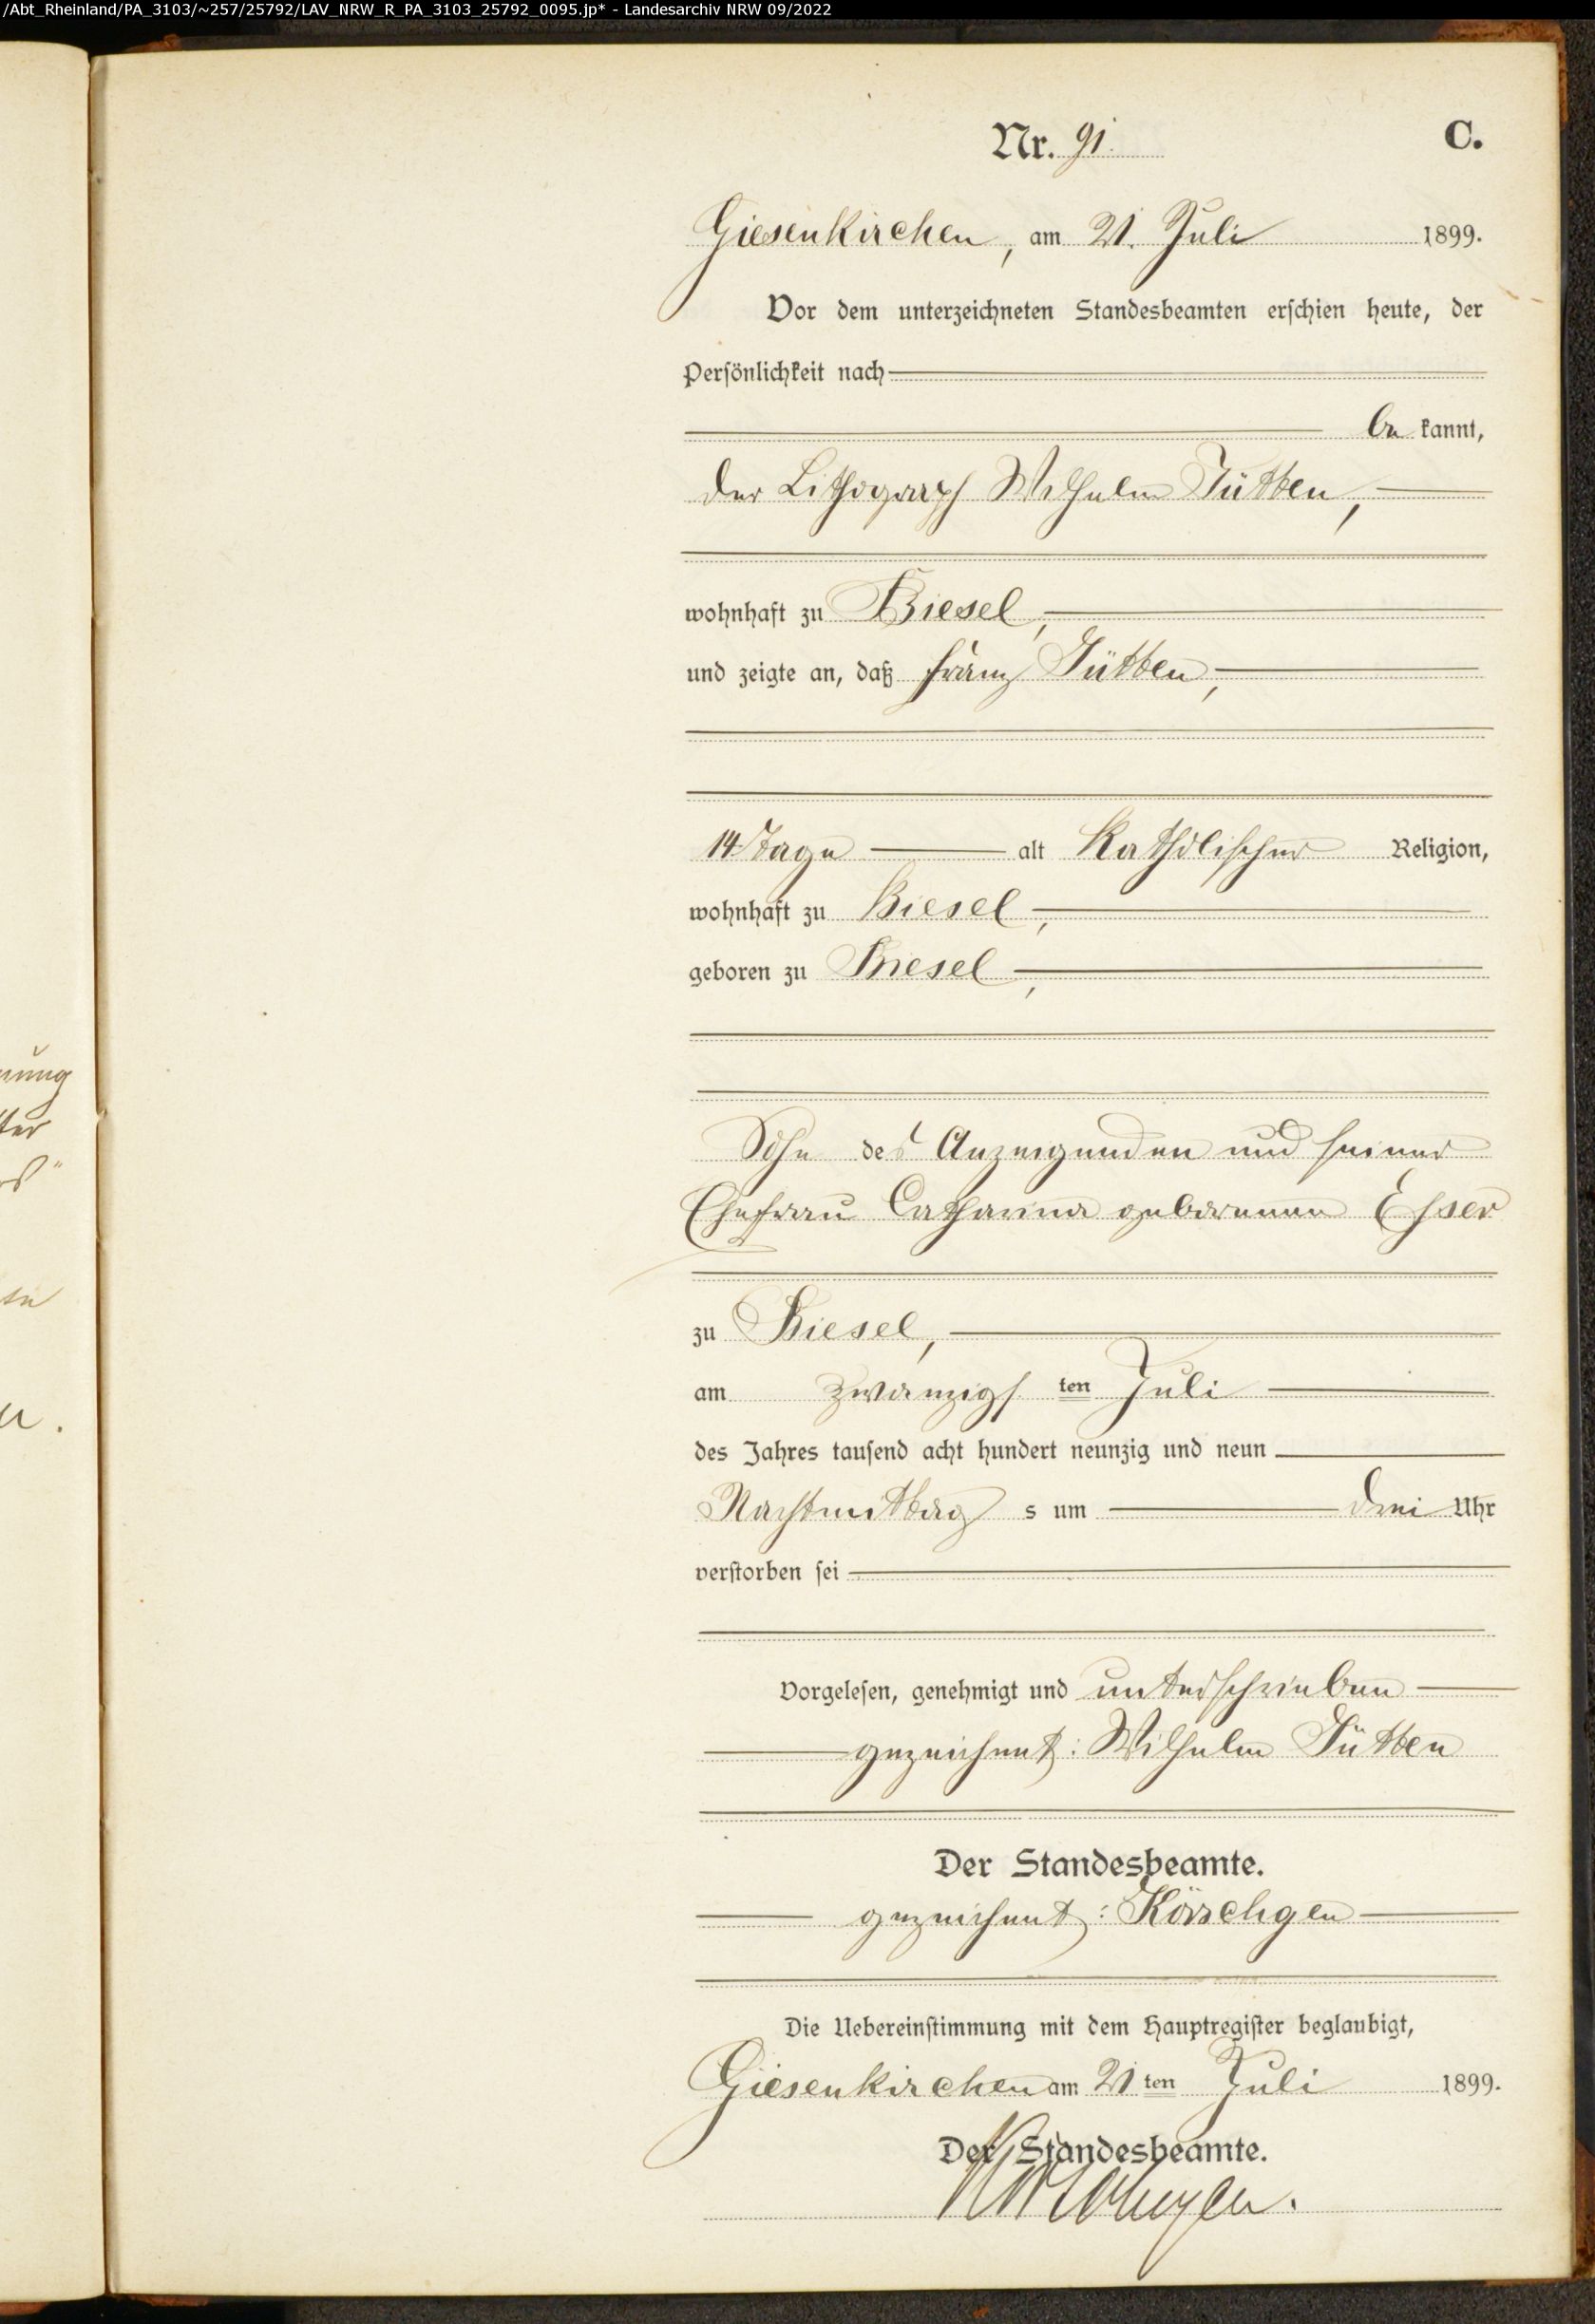 /Abt_Rheinland/PA_3103/~257/25792/LAV_NRW_R_PA_3103_25792_0095.jp* - Landesarchiv NRW 09/2022
Nr. 91.
C.
Giesenkirchen, am 21. Juli 1899.
Vor dem unterzeichneten Standesbeamten erschien heute, der
Persönlichkeit nach
be kannt,
der Lithograph Wilhelm Jütten,
wohnhaft zu Biesel,
und zeigte an, daß Franz Jütten,
14 Tage alt Katholischer Religion,
wohnhaft zu Biesel,
geboren zu Biesel,
Sohn des Anzeigenden und seiner
Ehefrau Catharina geborenen Esser
zu Biesel,
am zwanzigs ten Juli
des Jahres tausend acht hundert neunzig und neun
Nachmittag s um drei Uhr
verstorben sei
Vorgelesen, genehmigt und unterschrieben
gezeichnet: Wilhelm Jütten
Der Standesbeamte.
gezeichnet: Körschgen
Die Uebereinstimmung mit dem Hauptregister beglaubigt,
Giesenkirchen am 21 ten Juli 1899.
Der Standesbeamte.
Körschgen.
nung
ter